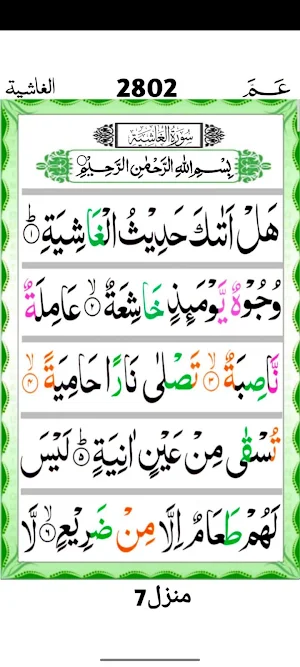 الغاشية 2802 عَمَّ
سُوْرَةُ الْغَاشِيَة
بِسْمِ اللهِ الرَّحْمٰنِ الرَّحِيْمِ
هَلْ اَتٰىكَ حَدِيْثُ الْغَاشِيَةِ ۝۱
وُجُوْهٌ يَّوْمَىِٕذٍ خَاشِعَةٌ ۝۲ عَامِلَةٌ
نَّاصِبَةٌ ۝۳ تَصْلٰى نَارًا حَامِيَةً ۝۴
تُسْقٰى مِنْ عَيْنٍ اٰنِيَةٍ ۝۵ لَيْسَ
لَهُمْ طَعَامٌ اِلَّا مِنْ ضَرِيْعٍ ۝۶ لَّا
منزل 7